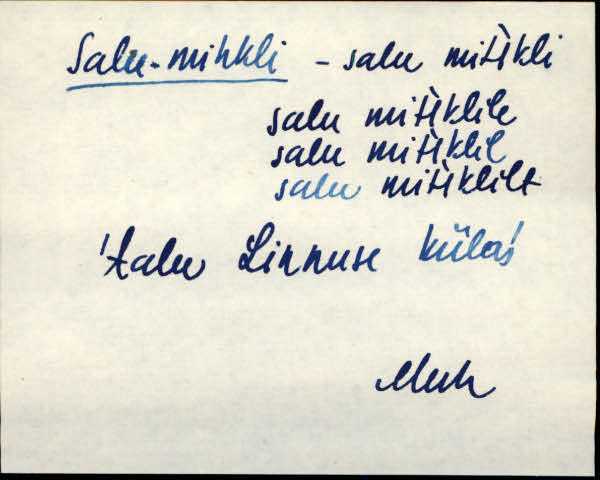 Salu-mihkli - salu mìhkli
salu mìhklile
salu mìhklil
salu mìhklilt
'talu Linnuse külas'
Muh